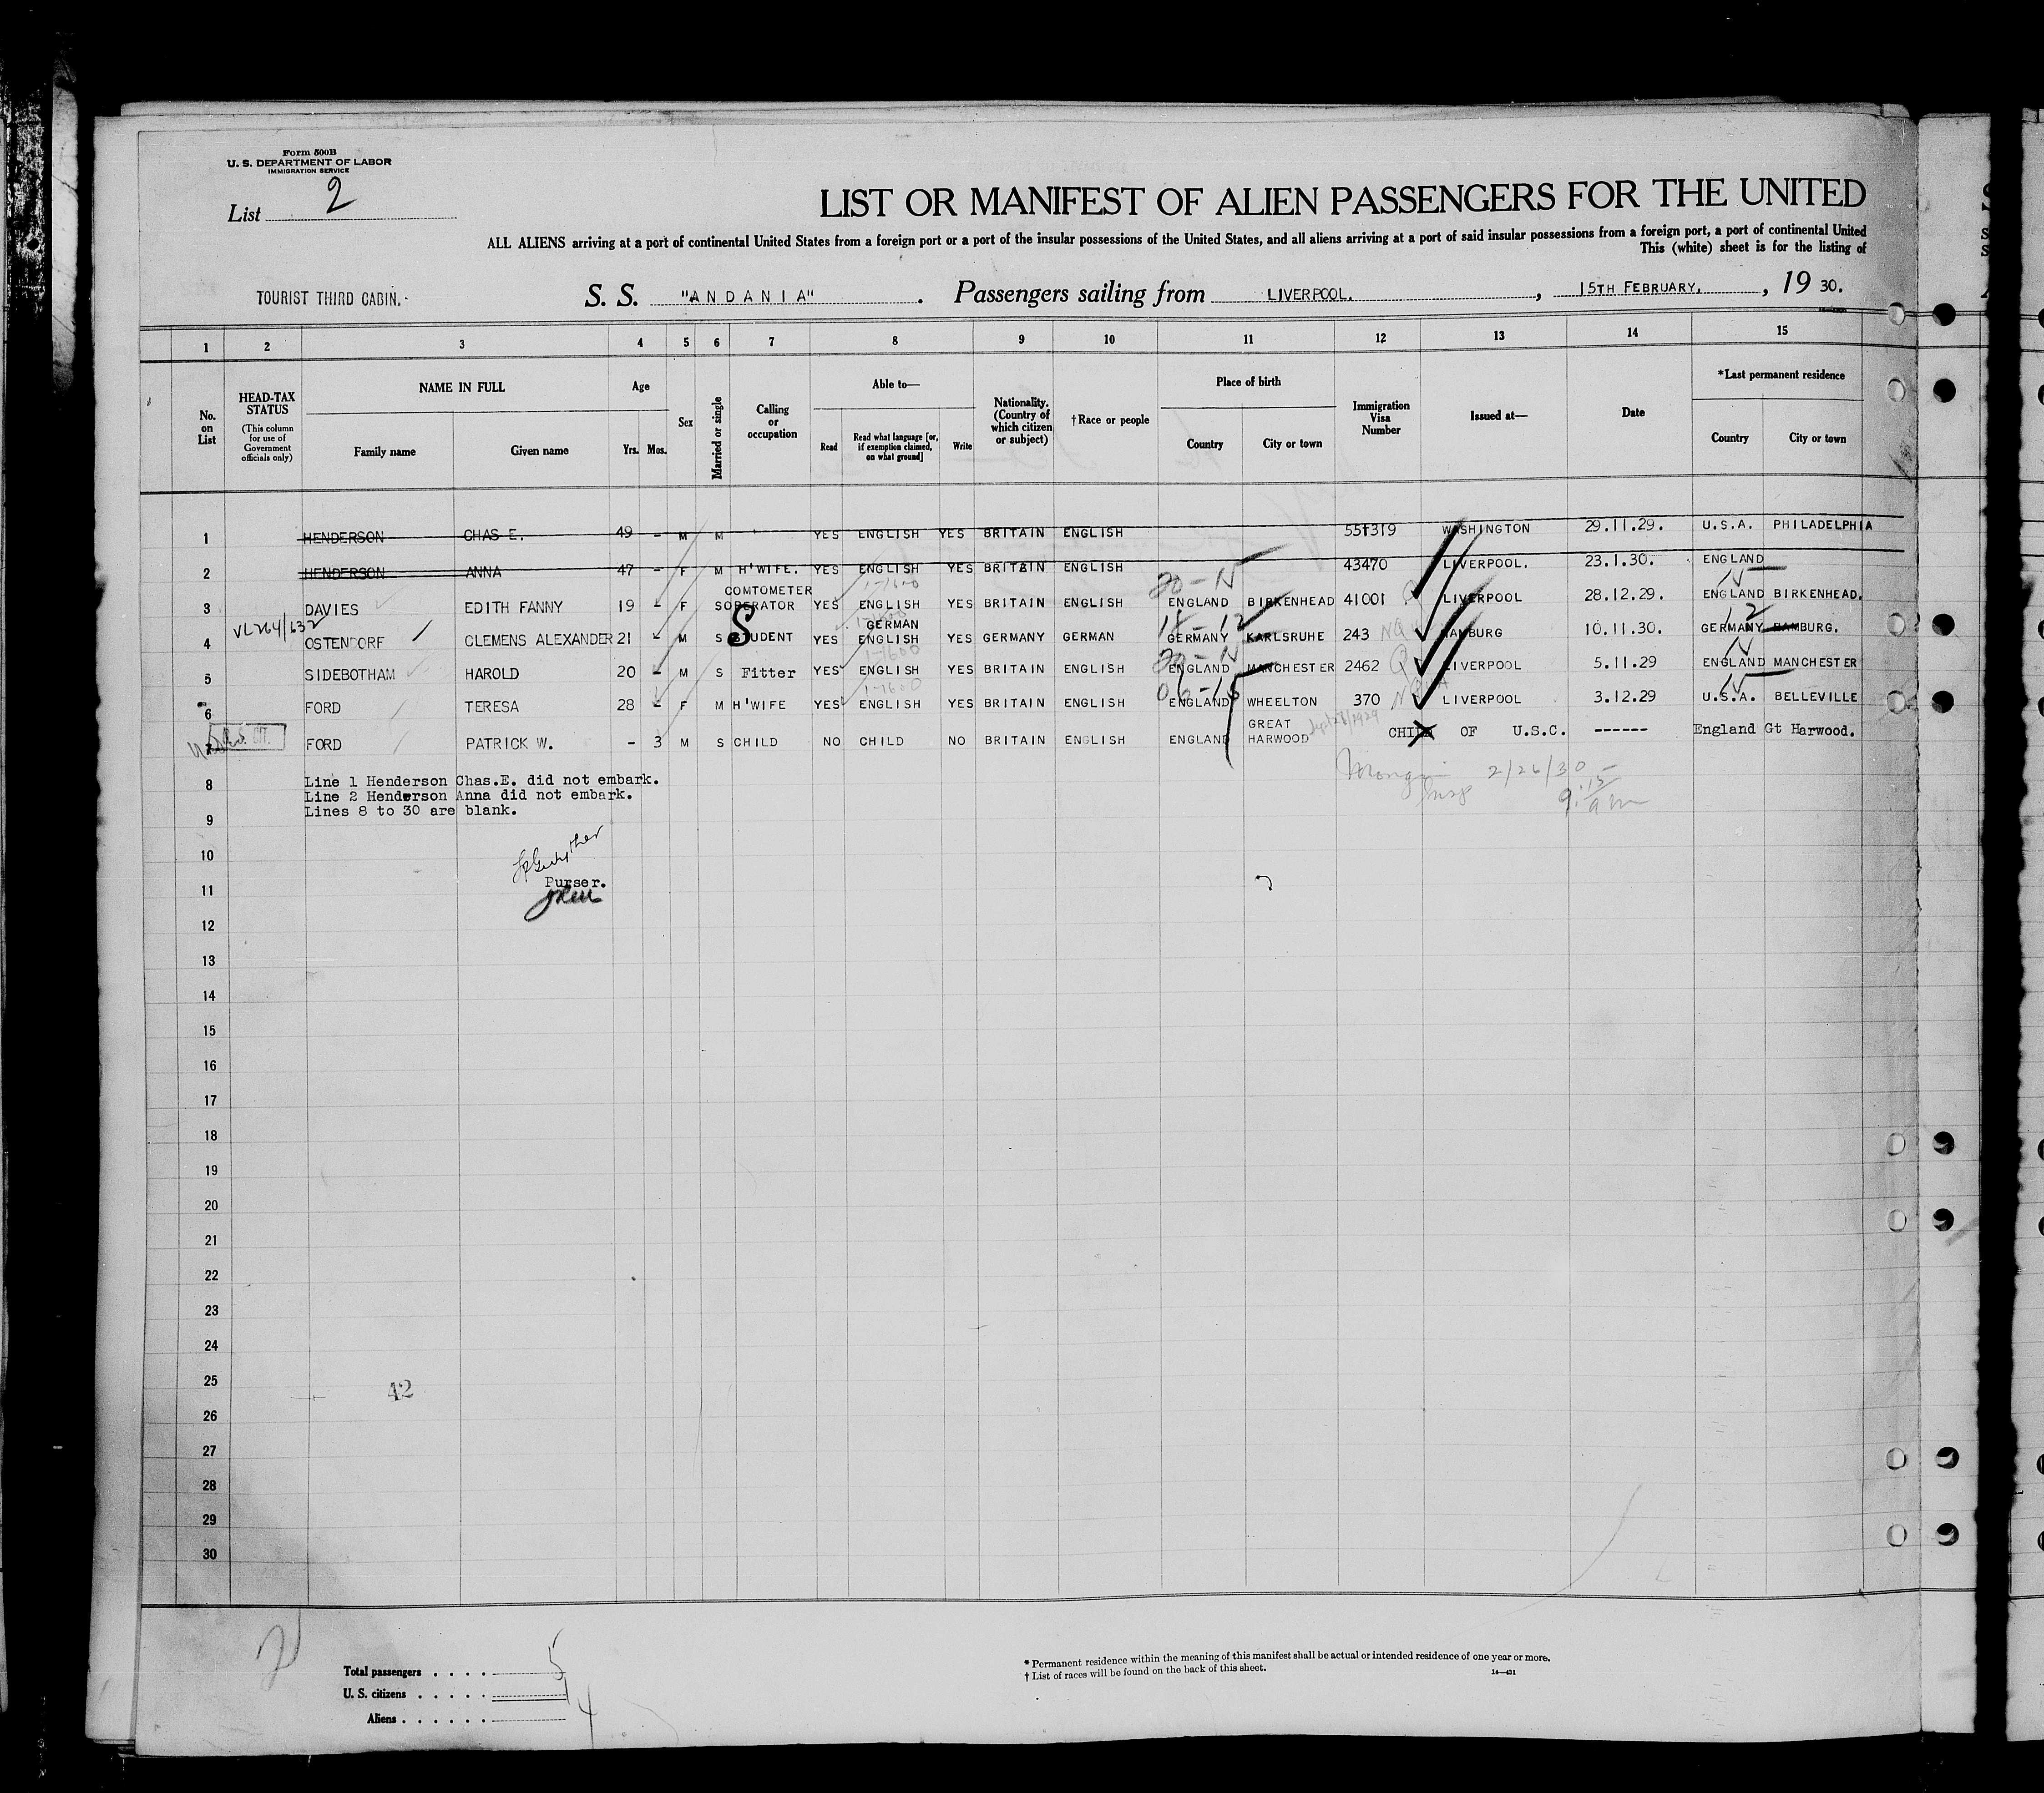 Form 500B
U. S. DEPARTMENT OF LABOR
IMMIGRATION SERVICE
List 2
LIST OR MANIFEST OF ALIEN PASSENGERS FOR THE UNITED
ALL ALIENS arriving at a port of continental United States from a foreign port or a port of the insular possessions of the United States, and all aliens arriving at a port of said insular possessions from a foreign port, a port of continental United
This (white) sheet is for the listing of
TOURIST THIRD CABIN. S. S. "ANDANIA" . Passengers sailing from LIVERPOOL. , 15TH FEBRUARY, , 19 30.
1 2 3 4 5 6 7 8 9 10 11 12 13 14 15
No. on List
HEAD-TAX STATUS
(This column for use of Government officials only)
NAME IN FULL
Family name Given name
Age
Yrs. Mos.
Sex
Married or single
Calling or occupation
Able to—
Read Read what language [or, if exemption claimed, on what ground] Write
Nationality. (Country of which citizen or subject)
†Race or people
Place of birth
Country City or town
Immigration Visa Number
Issued at—
Date
*Last permanent residence
Country City or town
1 HENDERSON CHAS E. 49 - M M YES ENGLISH YES BRITAIN ENGLISH 551319 WASHINGTON 29.11.29. U.S.A. PHILADELPHIA
2 HENDERSON ANNA 47 - F M H'WIFE. YES ENGLISH YES BRITAIN ENGLISH 43470 LIVERPOOL. 23.1.30. ENGLAND
1-1600 20-N N
3 DAVIES EDITH FANNY 19 - F S COMTOMETER OPERATOR YES ENGLISH YES BRITAIN ENGLISH ENGLAND BIRKENHEAD 41001 Q LIVERPOOL 28.12.29. ENGLAND BIRKENHEAD.
VL264/632 18-12 12
4 OSTENDORF CLEMENS ALEXANDER 21 M S STUDENT YES GERMAN ENGLISH YES GERMANY GERMAN GERMANY KARLSRUHE 243 NQ HAMBURG 10.11.30. GERMANY HAMBURG.
1-1600 20-N N
5 SIDEBOTHAM HAROLD 20 - M S Fitter YES ENGLISH YES BRITAIN ENGLISH ENGLAND MANCHESTER 2462 Q LIVERPOOL 5.11.29 ENGLAND MANCHESTER
1-1600
6 FORD TERESA 28 - F M H'WIFE YES ENGLISH YES BRITAIN ENGLISH ENGLAND WHEELTON 370 LIVERPOOL 3.12.29 U.S.A. BELLEVILLE
7 FORD PATRICK W. - 3 M S CHILD NO CHILD NO BRITAIN ENGLISH ENGLAND GREAT HARWOOD CHILD OF U.S.C. ------ England Gt Harwood.
8 Line 1 Henderson Chas.E. did not embark.
Line 2 Henderson Anna did not embark.
9 Lines 8 to 30 are blank.
2/26/30
9:15 am
10
Purser.
11
12
13
14
15
16
17
18
19
20
21
22
23
24
25
42
26
27
28
29
30
Total passengers . . . . 5
U. S. citizens . . . . . 1
Aliens . . . . . . 4
* Permanent residence within the meaning of this manifest shall be actual or intended residence of one year or more.
† List of races will be found on the back of this sheet.
14—421